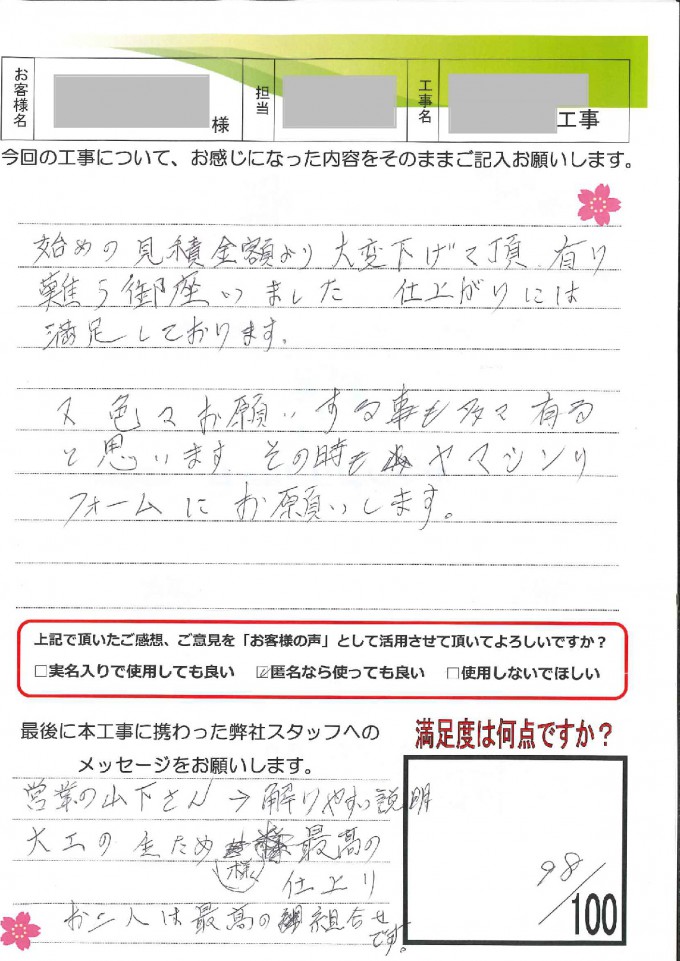 お客様名
様
担当
工事名
工事
今回の工事について、お感じになった内容をそのままご記入お願いします。
始めの見積金額より大変下げて頂、有り
難う御座いました 仕上がりには
満足しております。
又色々お願いする事も多々有る
と思います。その時も ヤマシンリ
フォームにお願いします。
上記で頂いたご感想、ご意見を「お客様の声」として活用させて頂いてよろしいですか？
□実名入りで使用しても良い ☑匿名なら使っても良い □使用しないでほしい
最後に本工事に携わった弊社スタッフへの
メッセージをお願いします。
営業の山下さん → 解りやすい説明
大工の 様 最高の
仕上り
お二人は最高の 組合せ
です。
満足度は何点ですか？
98/100